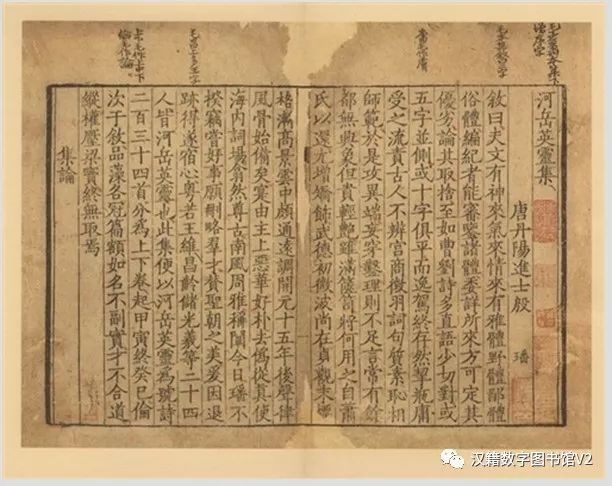 河岳英靈集
唐丹陽進士殷 璠
敘曰夫文有神來氣來情來有雅體野體鄙體
俗體編紀者能審鑒諸體委詳所來方可定其
優劣論其取捨至如曹劉詩多直語少切對或
五字並側或十字俱平而逸駕終存然挈瓶庸
受之流責古人不辨宮商徵羽詞句質素恥相
師範於是攻異端妄穿鑿理則不足言常有餘
都無興象但貴輕艷雖滿篋笥將何用之自蕭
氏以還尤增矯飾武德初微波尚在貞觀末標
格漸高景雲中頗通遠調開元十五年後聲律
風骨始備矣寔由主上惡華好朴去偽從真使
海内詞場翕然尊古南風周雅稱闡今日璠不
揆竊嘗好事願刪略羣才贊聖朝之美爰因退
跡得遂宿心粵若王維昌齡儲光羲等二十四
人皆河岳英靈也此集便以河岳英靈爲號詩
二百三十四首分爲上下卷起甲寅終癸巳倫
次于敘品藻各冠篇額如名不副實才不合道
縱權壓梁竇終無取焉
集論
汉籍数字图书馆V2